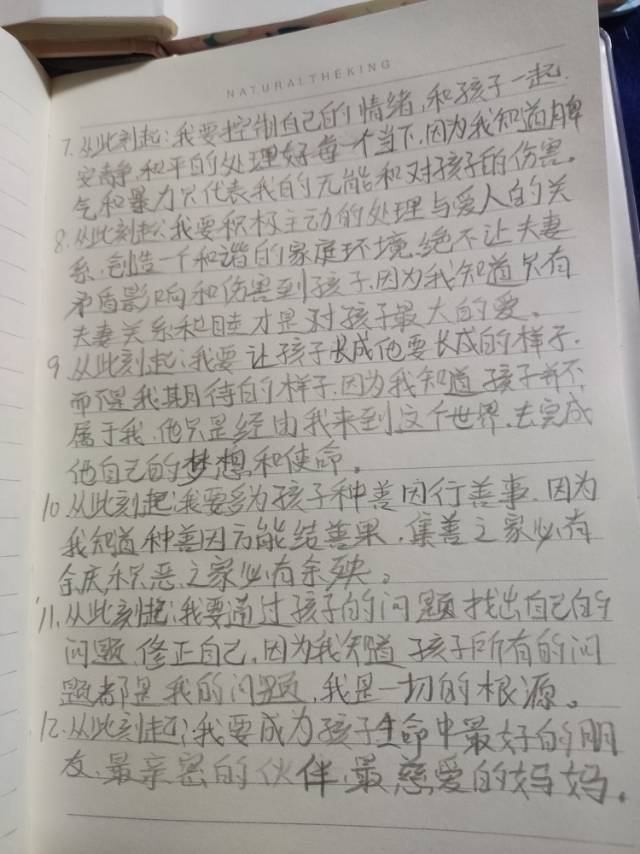 NATURALTHEKING
7. 从此刻起：我要控制自己的情绪，和孩子一起
安静，和平的处理好每一个当下，因为我知道脾
气和暴力只代表我的无能和对孩子的伤害。
8. 从此刻起：我要积极主动的处理与爱人的关
系，创造一个和谐的家庭环境，绝不让夫妻
矛盾影响和伤害到孩子，因为我知道只有
夫妻关系和睦才是对孩子最大的爱。
9 从此刻起：我要让孩子长成他要长成的样子，
而不是我期待的样子，因为我知道孩子并不
属于我，他只是经由我来到这个世界，去完成
他自己的梦想和使命。
10 从此刻起：我要多为孩子种善因行善事，因为
我知道种善因方能结善果，集善之家必有
余庆，积恶之家必有余殃。
11. 从此刻起：我要通过孩子的问题找出自己的
问题，修正自己，因为我知道孩子所有的问
题都是我的问题，我是一切的根源。
12. 从此刻起：我要成为孩子生命中最好的朋
友，最亲密的伙伴，最慈爱的妈妈。